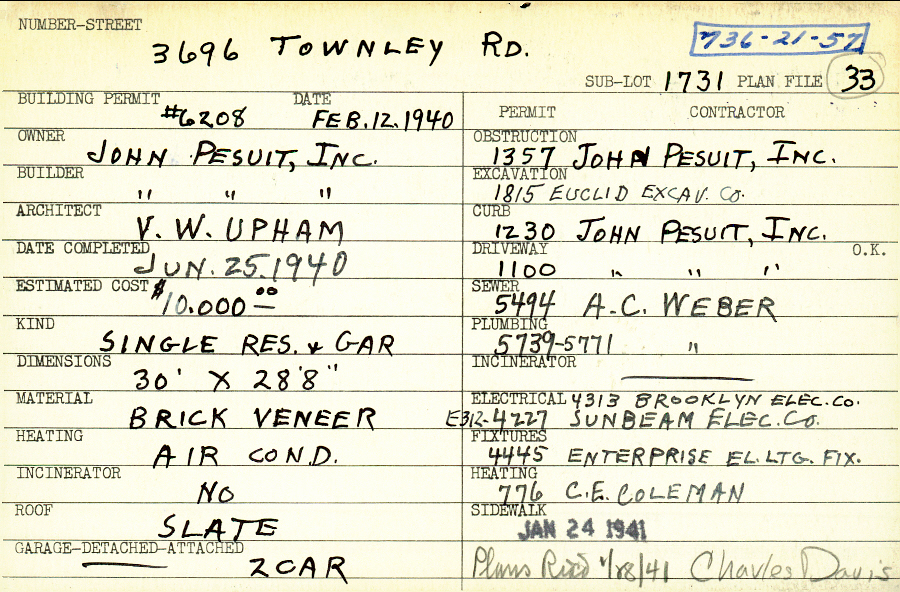 NUMBER-STREET
3696 TOWNLEY RD.
736-21-57
SUB-LOT 1731 PLAN FILE 33
BUILDING PERMIT #6208 DATE FEB.12.1940
PERMIT CONTRACTOR
OWNER JOHN PESUIT, INC.
OBSTRUCTION 1357 JOHN PESUIT, INC.
BUILDER " " "
EXCAVATION 1815 EUCLID EXCAV. CO.
ARCHITECT V. W. UPHAM
CURB 1230 JOHN PESUIT, INC.
DATE COMPLETED JUN. 25.1940
DRIVEWAY 1100 " " " O.K.
ESTIMATED COST $10.000 00
SEWER 5494 A.C. WEBER
KIND SINGLE RES. & GAR
PLUMBING 5739-5771 "
DIMENSIONS 30' X 28'8"
INCINERATOR
MATERIAL BRICK VENEER
ELECTRICAL 4313 BROOKLYN ELEC. CO.
E312-4227 SUNBEAM ELEC. CO.
HEATING AIR COND.
FIXTURES 4445 ENTERPRISE EL. LTG. FIX.
INCINERATOR NO
HEATING 776 C.E. COLEMAN
ROOF SLATE
SIDEWALK JAN 24 1941
GARAGE-DETACHED-ATTACHED 2 CAR
Plans /41 Charles Davis